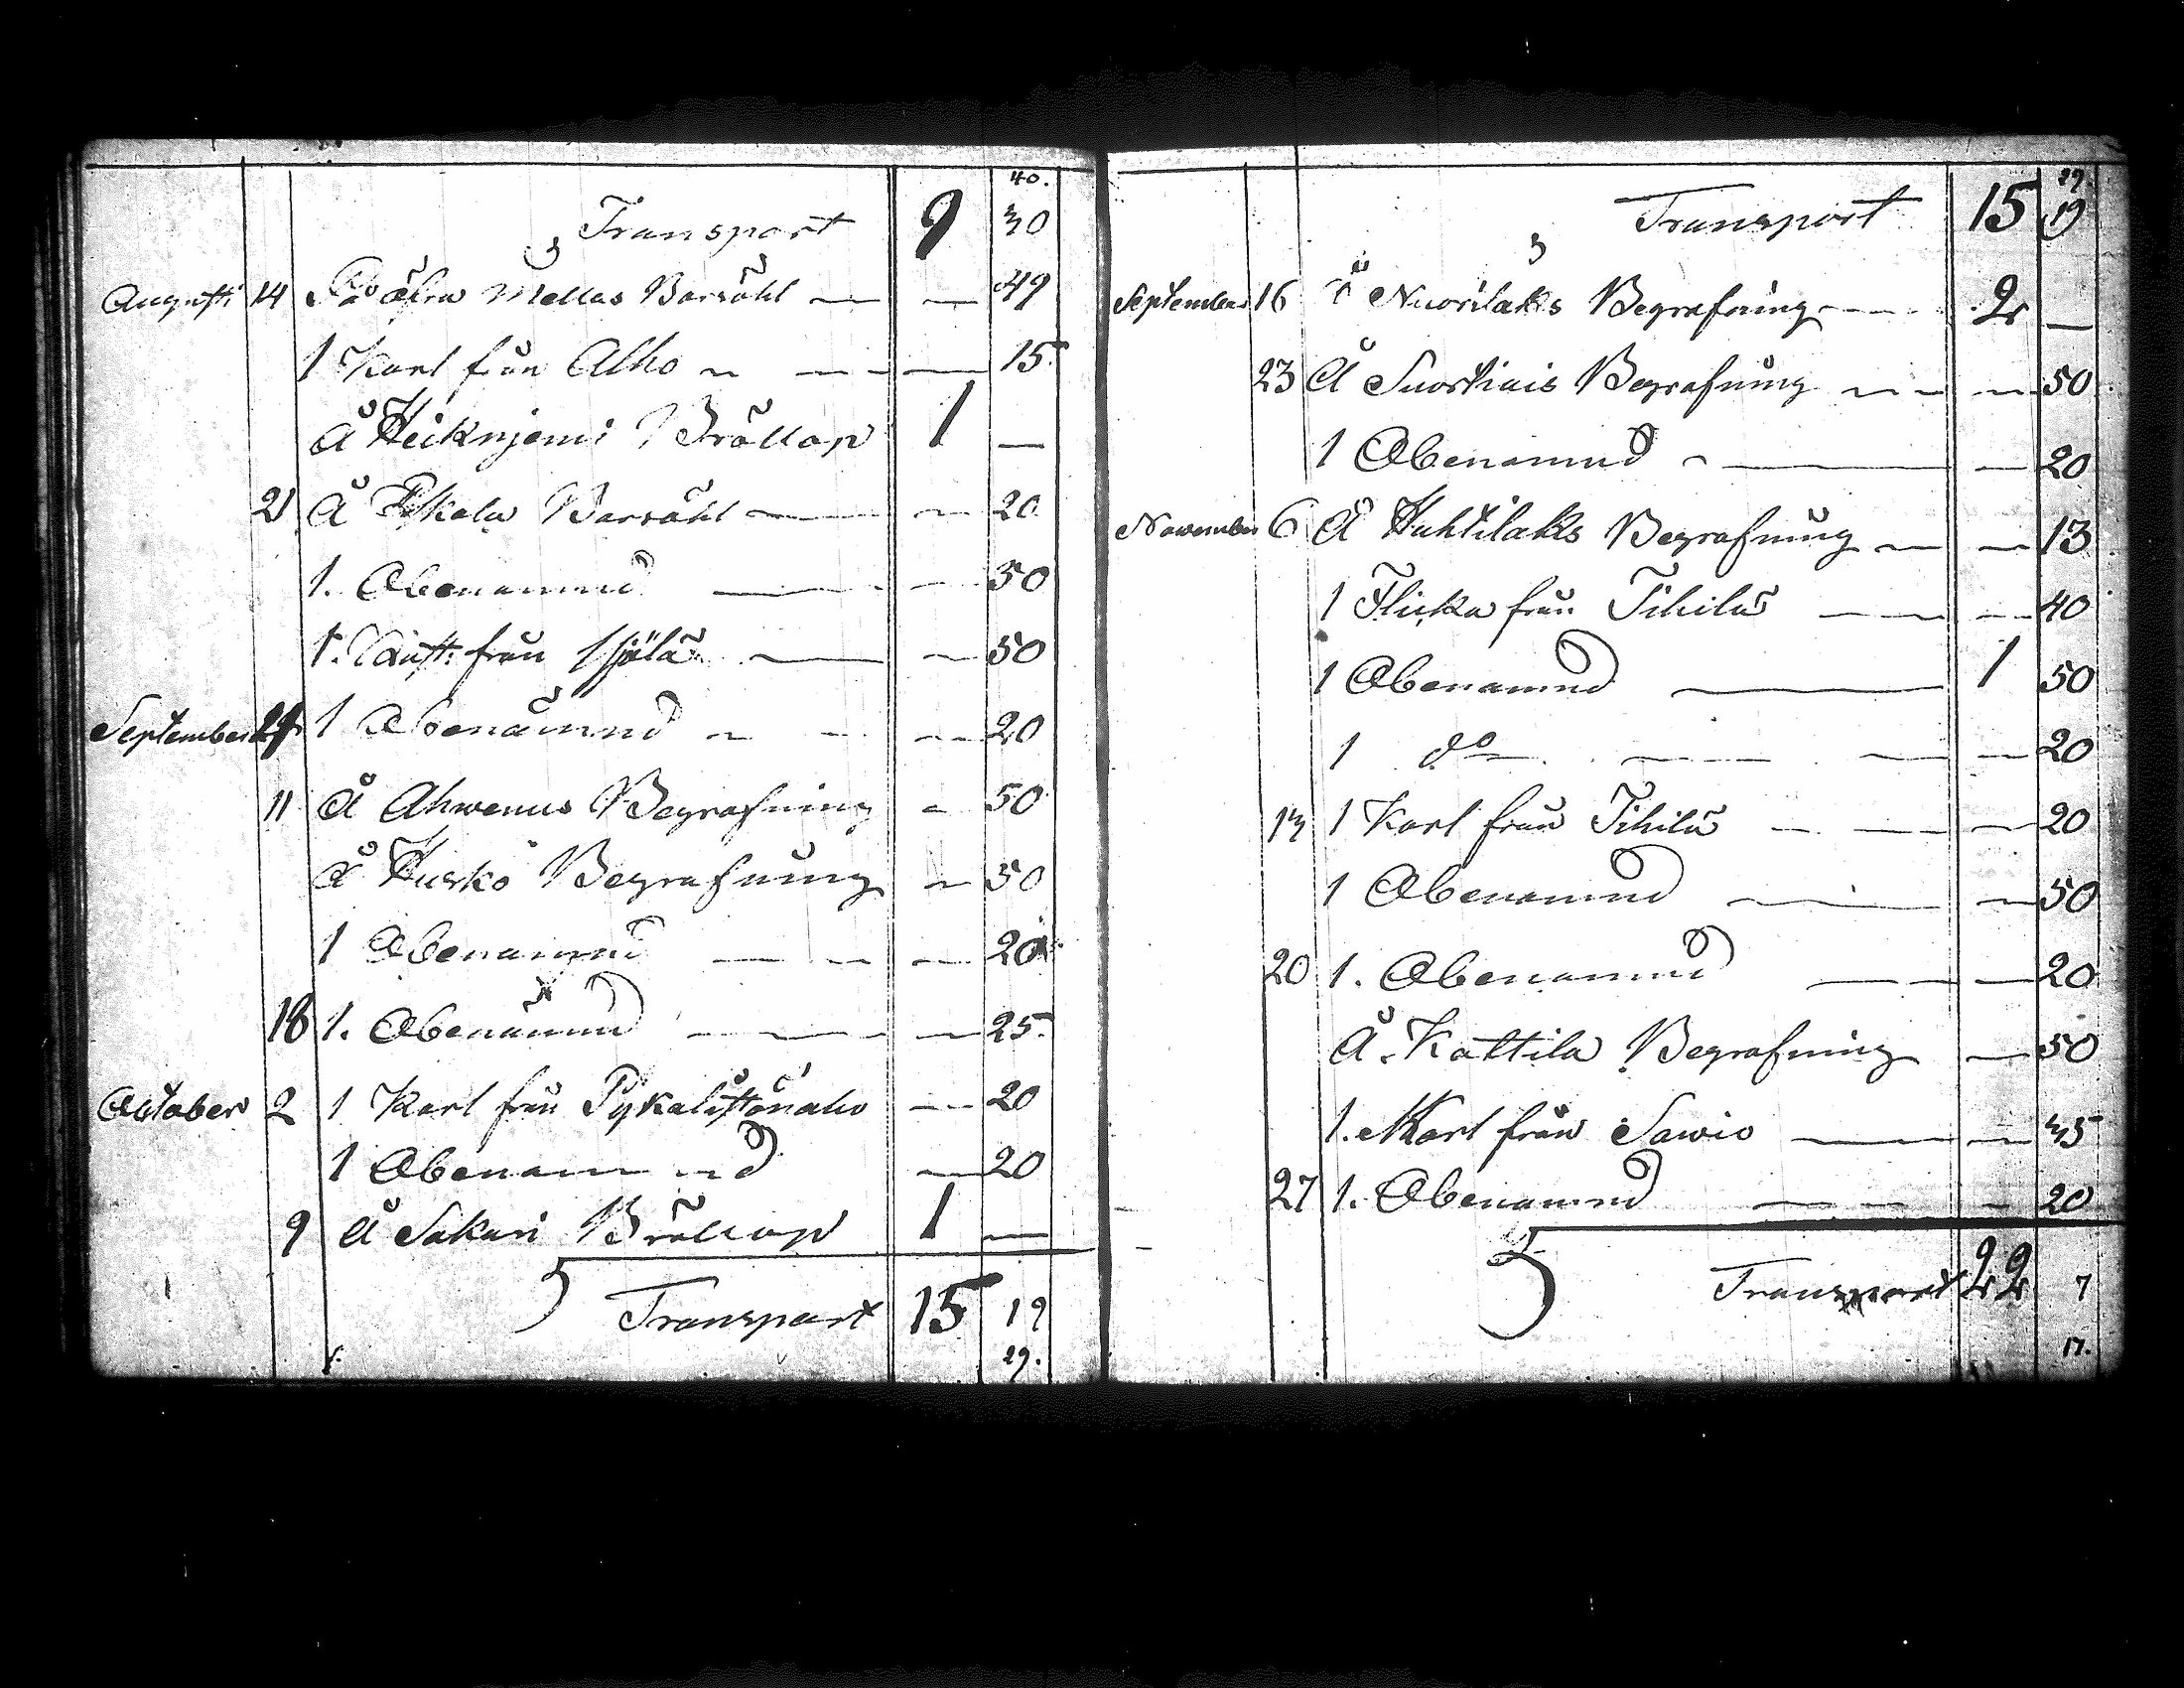 40.
Transport 9 30
Augusti 14 På öfra Mellas Barsöhl — — 49
1 Karl från Alho — — 15
Å Heiknjemi Bröllop 1 —
21 Å Pykala Barsöhl — — 20
1. Obenämnd — — 50
1. från Själä — — 50
September 4 1 Obenämnd — — 20
11 Å Ahwenus Begrafning — 50
Å Hurko Begrafning — 50
1 Obenämnd — — 20
18 1. Obenämnd — — 25.
October 2 1 Karl från — 20
1 Obenämnd — 20
9 Å Sakari Bröllop 1 —
Transport 15 19
29.
29.
Transport 15 19
September 16 Å Nuorilaks Begrafning — 2 —
23 Å Suortiais Begrafning — — 50
1 Obenämnd — — 20
November 6 Å Huhtilaks Begrafning — — 13
1 Flicka från Tihilä — — 40
1 Obenämnd — 1 50
1 do — — 20
13 1 Karl från Tihilä — — 20
1 Obenämnd — — 50
20 1. Obenämnd — — 20
Å Kattila Begrafning — 50
1. Karl från Sawio — — 35
27 1. Obenämnd — — 20
Transport 22 7
17.